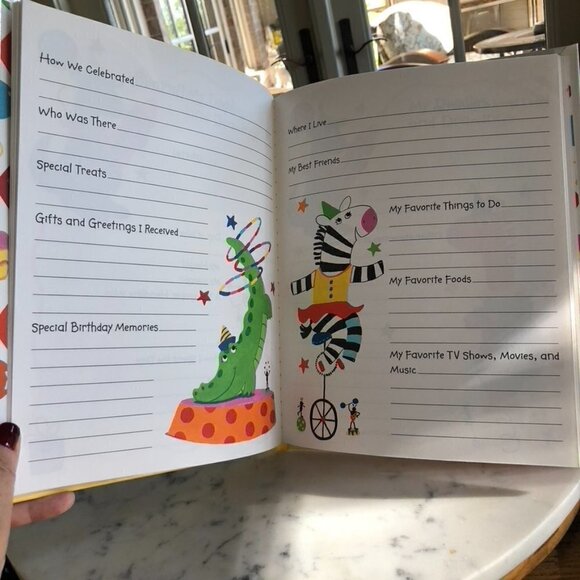 How We Celebrated
Who Was There
Special Treats
Gifts and Greetings I Received
Special Birthday Memories
Where I Live
My Best Friends
My Favorite Things to Do
My Favorite Foods
My Favorite TV Shows, Movies, and
Music